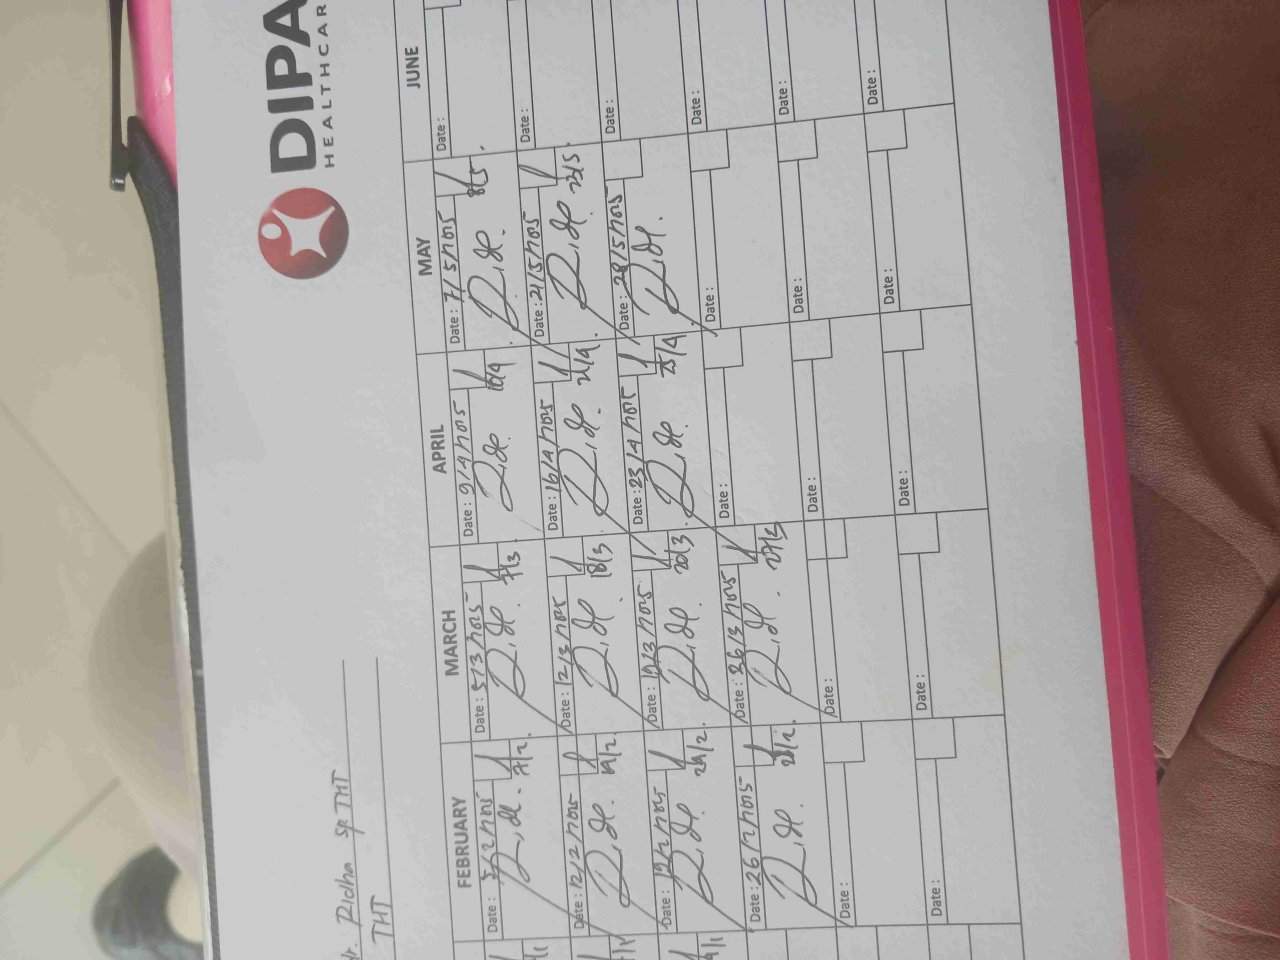 DIPA
HEALTHCAR
Ridha sp THT
THT
FEBRUARY MARCH APRIL MAY JUNE
Date: 5/2/2025 Date: 5/3/2025 Date: 9/4/2025 Date: 7/5/2025 Date:
7/2. 7/3. 10/4 8/5.
Date: 12/2/2025 Date: 12/3/2025 Date: 16/4/2025 Date: 21/5/2025 Date:
14/2. 18/3. 21/4. 23/5.
Date: 19/2/2025 Date: 19/3/2025 Date: 23/4/2025 Date: 28/5/2025 Date:
24/2. 20/3. 25/4.
Date: 26/2/2025 Date: 26/3/2025 Date: Date: Date:
28/2. 27/3
Date: Date: Date: Date: Date:
Date: Date: Date: Date: Date: